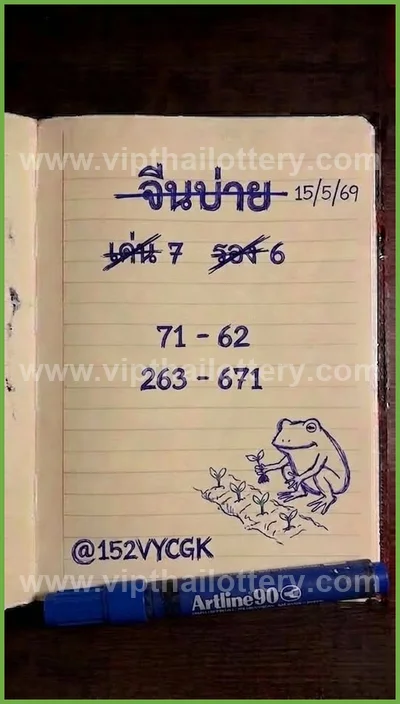 www.vipthailottery.com
จีนบ่าย 15/5/69
เด่น 7 รอง 6
71 - 62
www.vipthailottery.com
263 - 671
@152VYCGK
www.vipthailottery.com
Artline 90